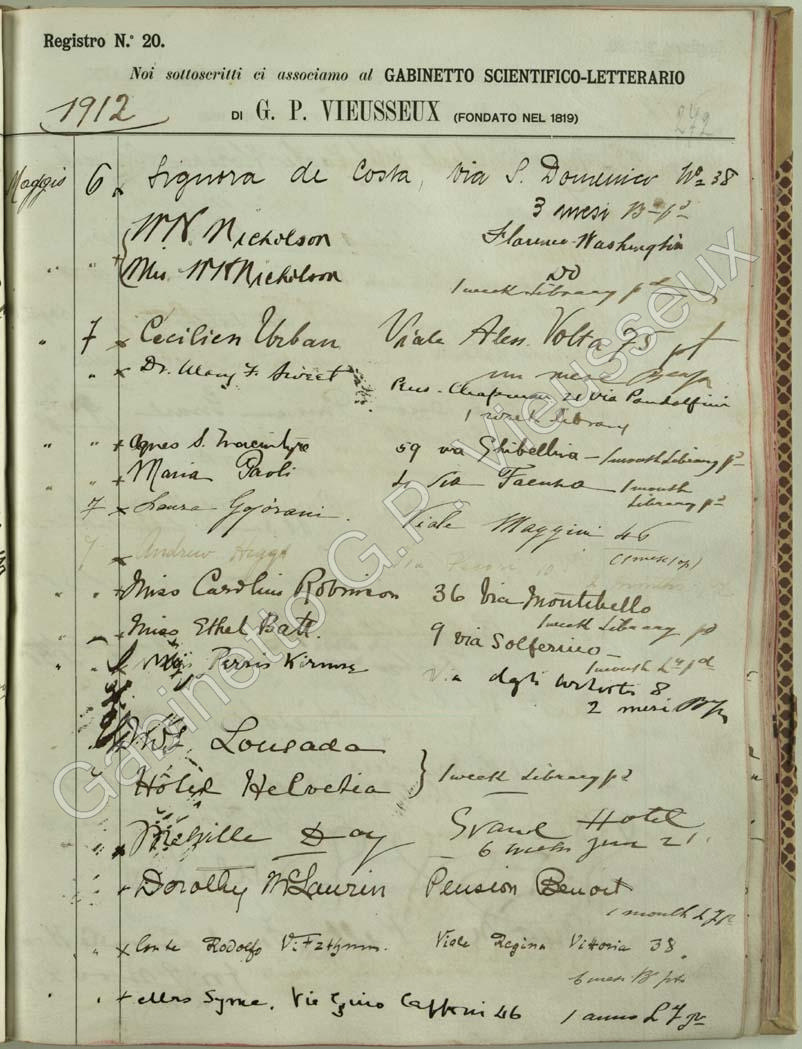 Registro N.º 20.
Noi sottoscritti ci associamo al GABINETTO SCIENTIFICO-LETTERARIO
1912
DI G. P. VIEUSSEUX (FONDATO NEL 1819)
Maggio 6 Signora de Costa, via S. Domenico Nº 38
3 mesi
W N Nicholson Florence-Washington
" " Mrs. W N Nicholson Do
1 week Library pd
" 7 Cecilien Urban Viale Aless. Volta 75
un mese
" Dr. Mary F. Sweet Pens. Chapman 21 via Pandolfini
1 week Library
" " Agnes S. Macintyre 59 via Ghibellina - 1 month Library pd
" " Maria Paoli 4 Via Faenza 1 month
Library pd
7 Laura Viale 46
7 Andrew
" " Miss Carolins Robinson 36 Via Montebello
1 week Library pd
" Miss Ethel Batt. 9 via Solferino
1 month Ly pd
" " Perris via degli Artisti 8
2 mesi
" Lousada
" Hôtel Helvetia } 1 week Library pd
" Melville Day Grand Hotel
6 June 21.
" Dorothy McLaurin Pension Benoit
1 month
" Conte Rodolfo Vitzthum. Viale Regina Vittoria 38.
6 mesi
" " Mrs Syme. Via Gino Capponi 46 1 anno
Gabinetto G.P. Vieusseux